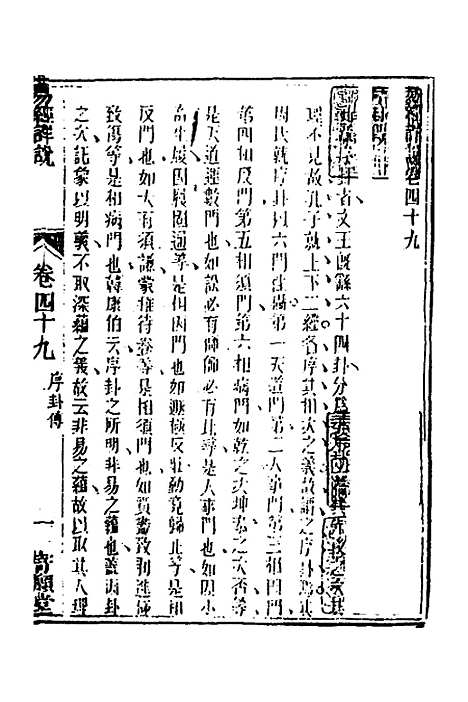 易經詳說卷四十九
序卦傳者文王既繇六十四卦分爲
理不見故孔子就上下二經各序其相次之義故謂之序卦焉
周氏就序卦以六門往攝第一天道門第二人事門第三相因門
第四相反門第五相須門第六相病門如乾之次坤泰之次否等
是天道運數門也如訟必有師師必有比等是人事門也如因小
畜生履因履故通等是相因門也如遯極反壯動竟歸止等是相
反門也如大有須謙蒙稚待養等是相須門也如賁盡致剝進極
致傷等是相病門也韓康伯云序卦之所明非易之蘊也蓋因卦
之次託象以明義不取深蘊之義故云非易之蘊故以取其人理
易經詳說
卷四十九
序卦傳
一
寄願堂